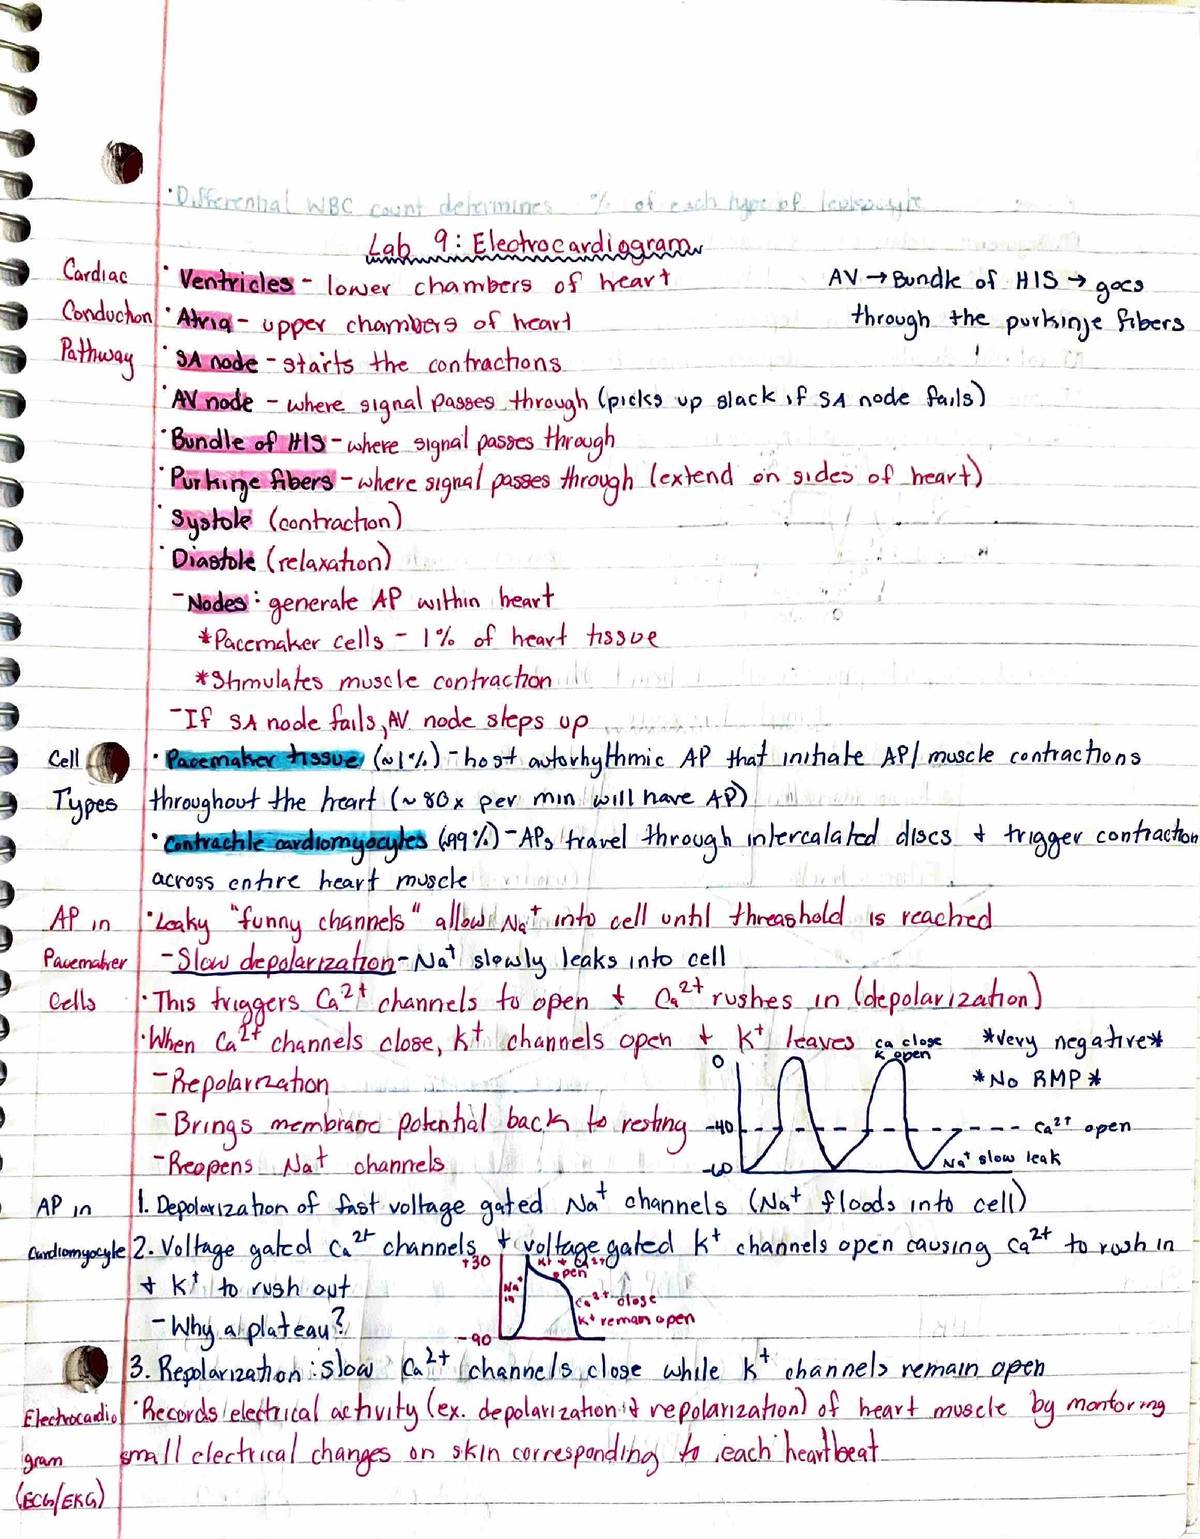 · Differential WBC count determines % of each type of leukocyte
Lab 9: Electrocardiogram
Cardiac Conduction Pathway
· Ventricles - lower chambers of heart
· Atria - upper chambers of heart
· SA node - starts the contractions
· AV node - where signal passes through (picks up slack if SA node fails)
· Bundle of HIS - where signal passes through
· Purkinje fibers - where signal passes through (extend on sides of heart)
· Systole (contraction)
· Diastole (relaxation)
- Nodes: generate AP within heart
*Pacemaker cells - 1% of heart tissue
*Stimulates muscle contraction
- If SA node fails, AV node steps up
AV → Bundle of HIS → goes
through the purkinje fibers
Cell Types
· Pacemaker tissue (~1%) - host autorhythmic AP that initiate AP/ muscle contractions
throughout the heart (~ 80x per min will have AP)
· Contractile cardiomyocytes (~99%) - APs travel through intercalated discs + trigger contraction
across entire heart muscle
AP in Pacemaker Cells
· Leaky "funny channels" allow Na+ into cell until threashold is reached
- Slow depolarization - Na+ slowly leaks into cell
· This triggers Ca2+ channels to open + Ca2+ rushes in (depolarization)
· When Ca2+ channels close, K+ channels open + K+ leaves
- Repolarization
- Brings membrane potential back to resting
- Reopens Na+ channels
ca close
K open
*Very negative*
*No RMP*
0
-40
-60
Ca2+ open
Na+ slow leak
AP in Cardiomyocyte
1. Depolarization of fast voltage gated Na+ channels (Na+ floods into cell)
2. Voltage gated Ca2+ channels + voltage gated K+ channels open causing Ca2+ to rush in
+ K+ to rush out
- Why a plateau?
+30
-90
Na+ in
K+ + Ca2+
open
Ca2+ close
K+ remain open
3. Repolarization: slow Ca2+ channels close while K+ channels remain open
Electrocardio
gram
(ECG/EKG)
· Records electrical activity (ex. depolarization + repolarization) of heart muscle by montoring
small electrical changes on skin corresponding to each heartbeat